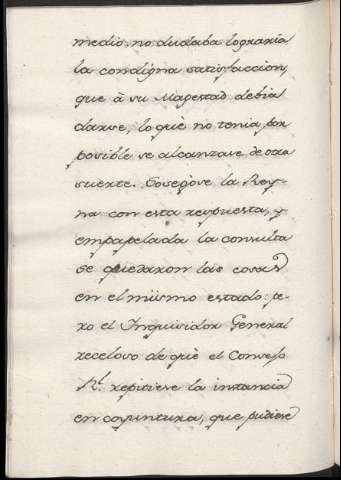 medio, no dudaba lograria
la condigna satisfaccion,
que à su Magestad debia
darse, lo què no tenia por
posible se alcanzase de otra
suerte. Sosegòse la Rey-
na con esta respuesta, y
empapelada la consulta
se quedaron las cosas
en el miismo estado: pe-
ro el Inquisidor General
receloso de què el Consejo
Rl. repitiese la instancia
en coyuntura, que pudiese